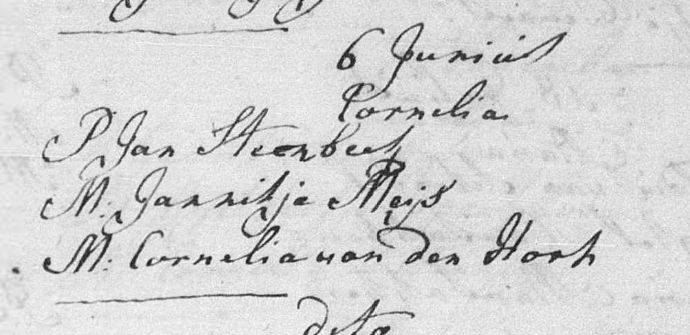 6 Junius
Cornelia
P. Jan Steenbeek
M. Jannitje Meijs
M. Cornelia van den Horh
dito